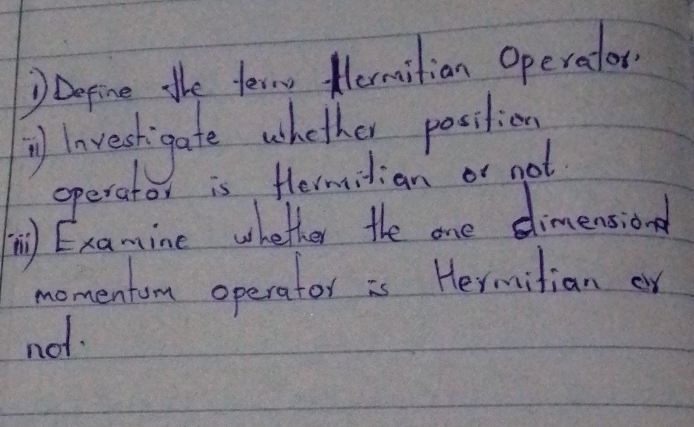 i) Define the term Hermitian Operator.
ii) Investigate whether position
operator is Hermitian or not.
iii) Examine whether the one dimensional
momentum operator is Hermitian or
not.